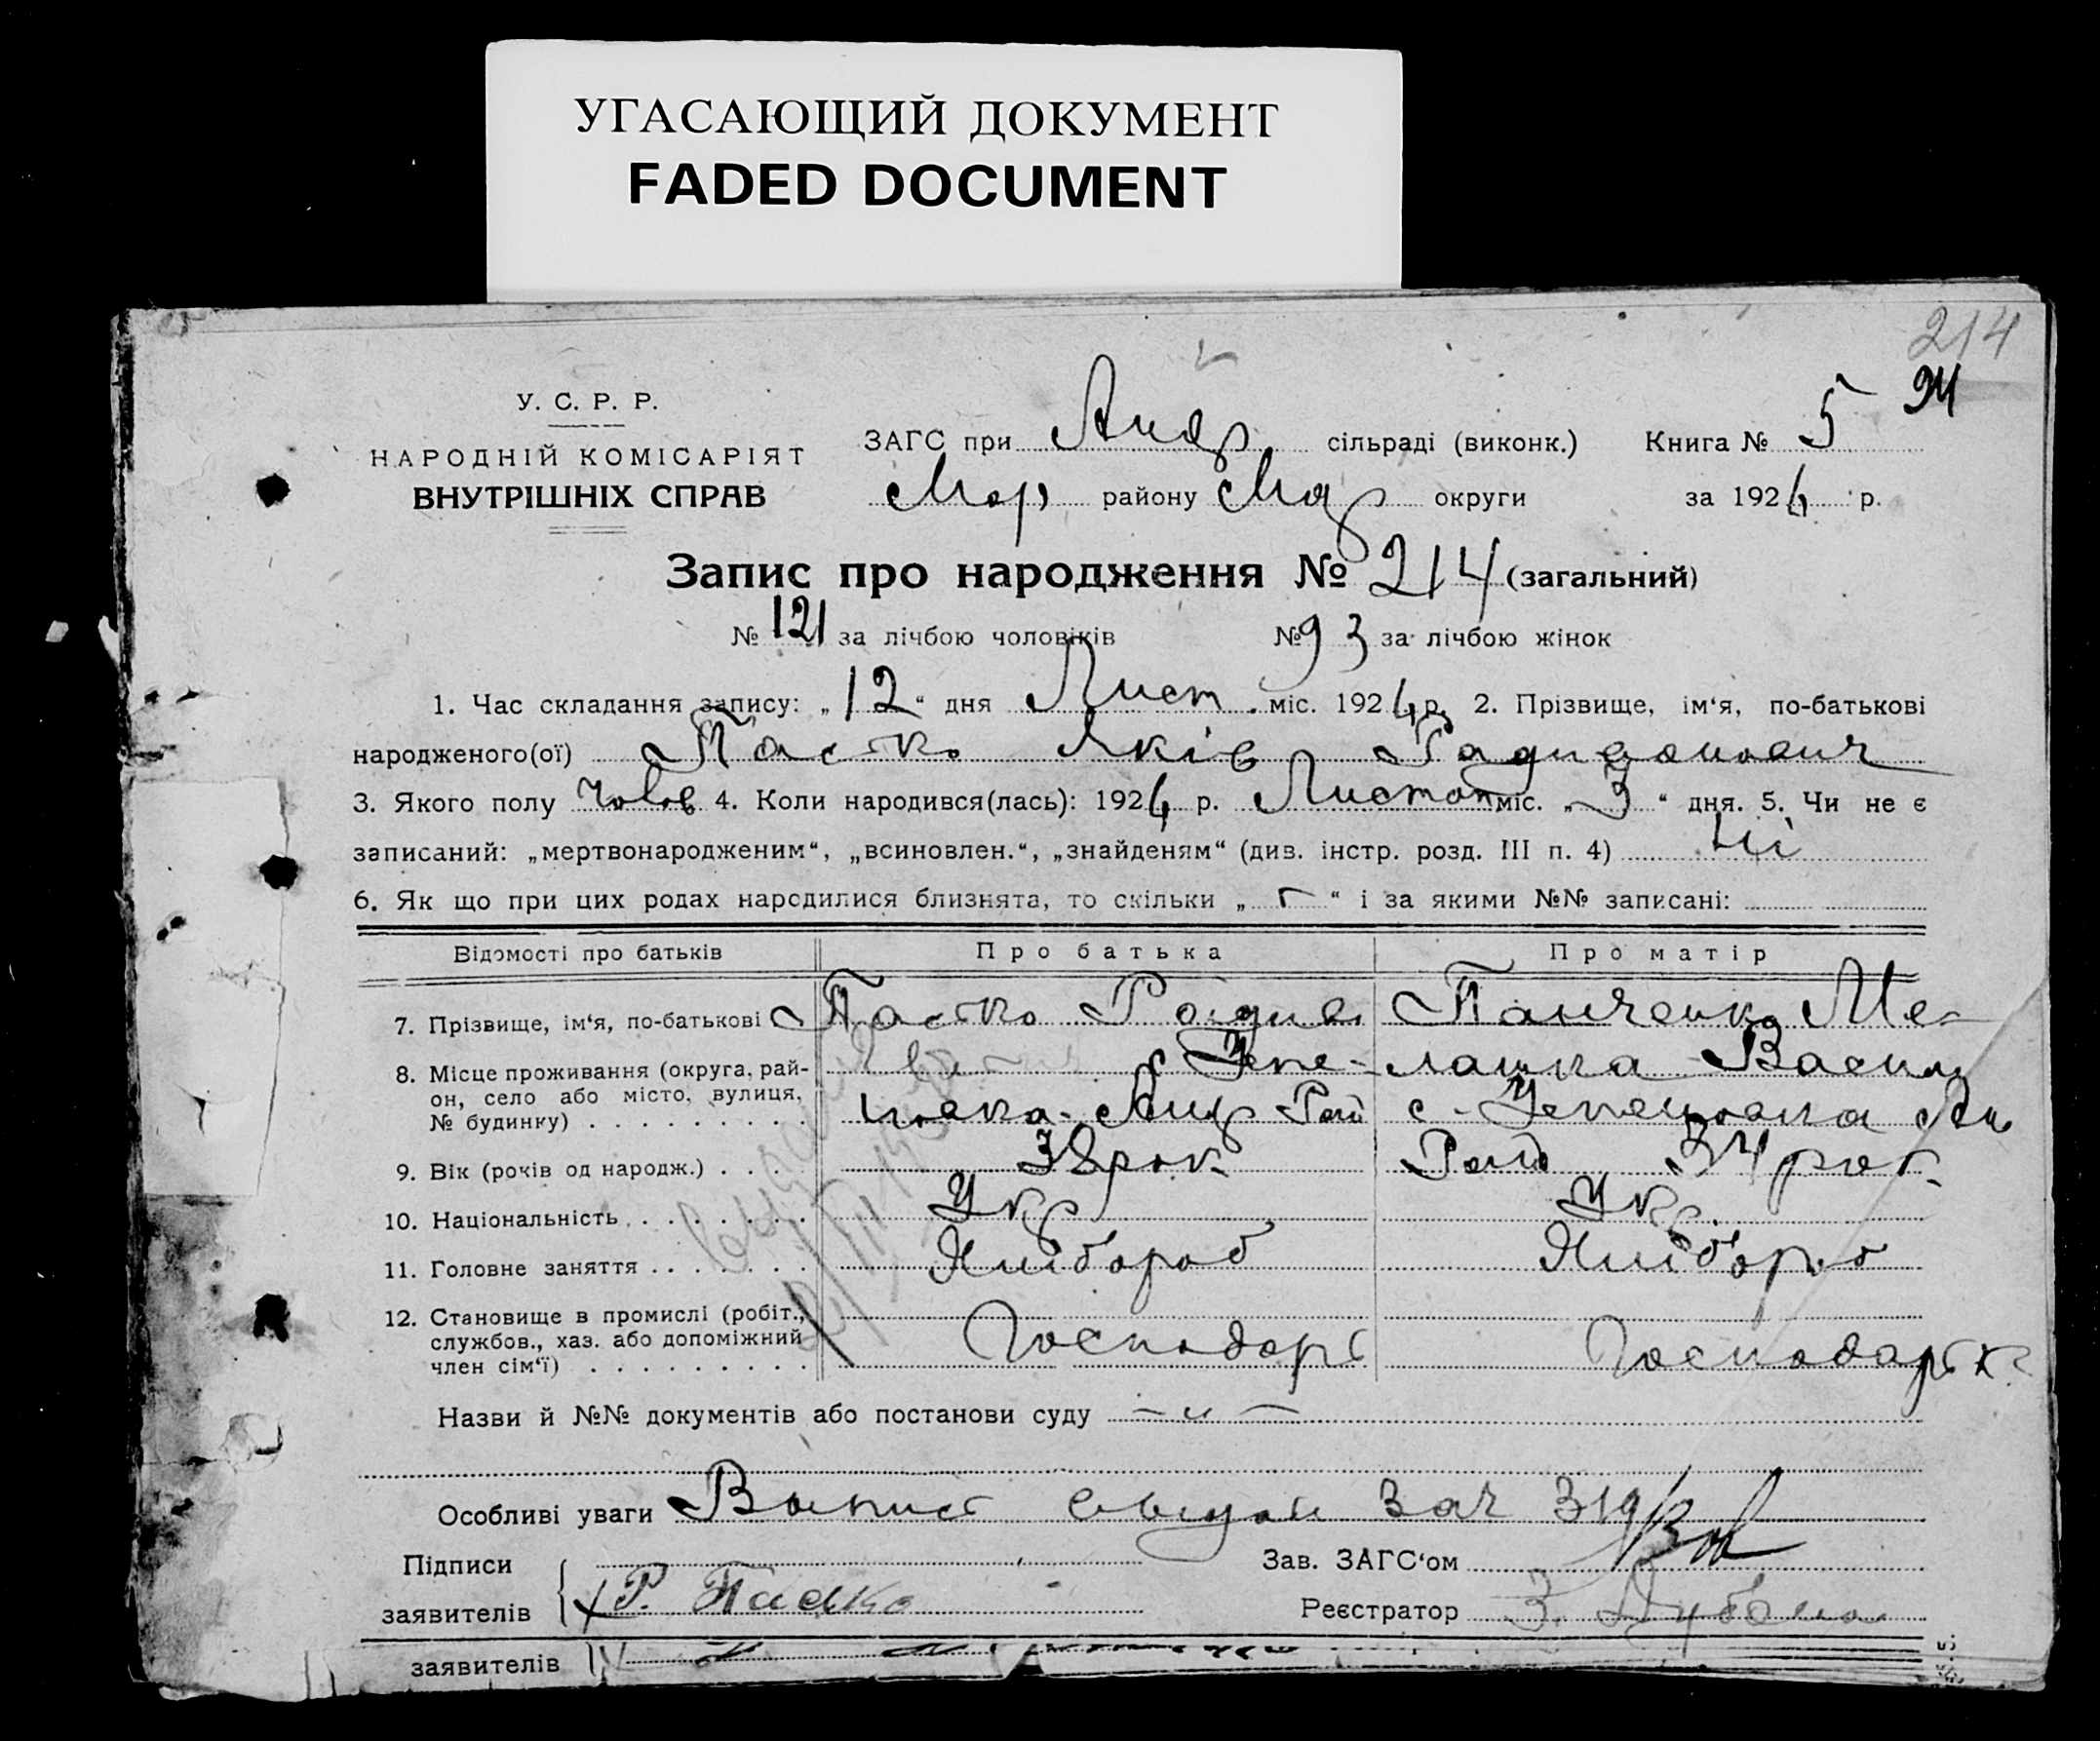 УГАСАЮЩИЙ ДОКУМЕНТ
FADED DOCUMENT
214
94
У. С. Р. Р.
НАРОДНІЙ КОМІСАРІЯТ
ВНУТРІШНІХ СПРАВ
ЗАГС при Андр сільраді (виконк.) Книга № 5
Мар району Мар округи за 1924 р.
Запис про народження № 214 (загальний)
№ 121 за лічбою чоловіків № 93 за лічбою жінок
1. Час складання запису: „12“ дня Лист. міс. 1924 р. 2. Прізвище, ім‘я, по-батькові
народженого(ої) Пастко Яків Радивонович
3. Якого полу Чолов 4. Коли народився(лась): 1924 р. Листоп міс. „3“ дня. 5. Чи не є
записаний: „мертвонародженим“, „всиновлен.“, „знайденям“ (див. інстр. розд. III п. 4) ні
6. Як що при цих родах народилися близнята, то скільки „ “ і за якими №№ записані:
Відомості про батьків Про батька Про матір
7. Прізвище, ім‘я, по-батькові Пастко Радиво Панченко Ме-
8. Місце проживання (округа, рай-
он, село або місто, вулиця,
№ будинку) лашка Васил
9. Вік (років од народж.) 38 рок 34 рок
10. Національність Укр Укр
11. Головне заняття Хлібороб Хлібороб
12. Становище в промислі (робіт.,
службов., хаз. або допоміжний
член сім‘ї) Господарь Господарьк
Назви й №№ документів або постанови суду — „ —
Особливі уваги Выпись выдан за ч 319
Підписи
заявителів Р. Пастко
Зав. ЗАГС‘ом
Реєстратор З.
заявителів